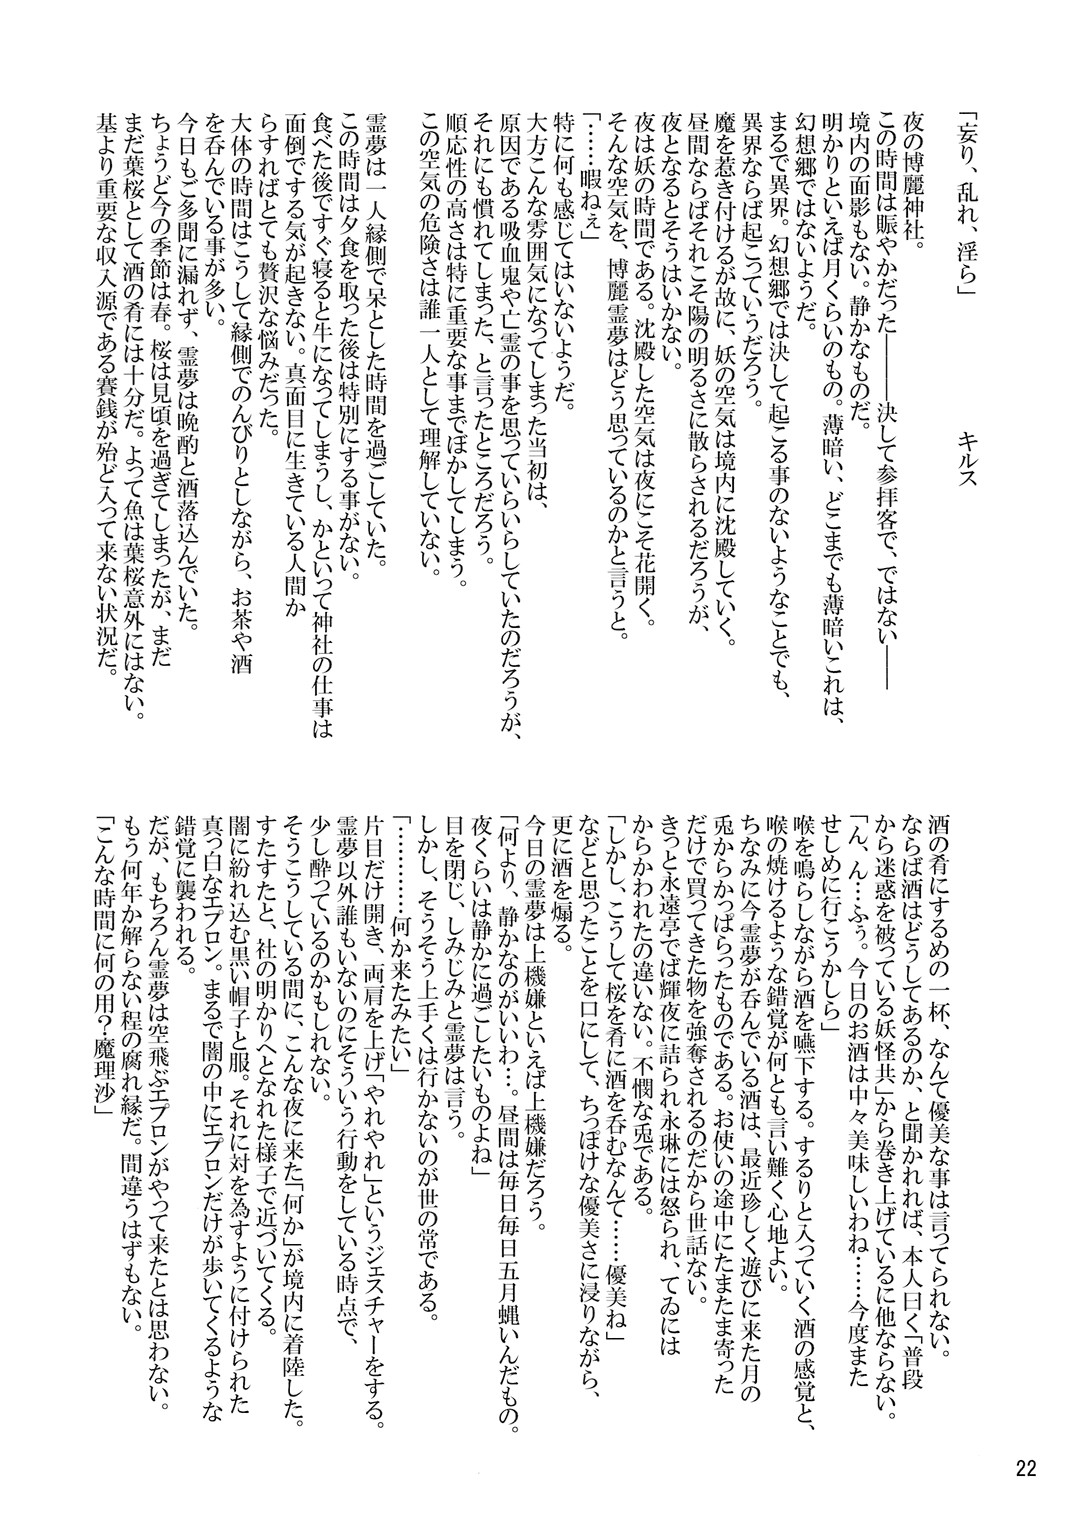 「妄り、乱れ、淫ら」　　　　　キルス
夜の博麗神社。
この時間は賑やかだった―――決して参拝客で、ではない――
境内の面影もない。静かなものだ。
明かりといえば月くらいのもの。薄暗い、どこまでも薄暗いこれは、
幻想郷ではないようだ。
まるで異界。幻想郷では決して起こる事のないようなことでも、
異界ならば起こっていうだろう。
魔を惹き付けるが故に、妖の空気は境内に沈殿していく。
昼間ならばそれこそ陽の明るさに散らされるだろうが、
夜となるとそうはいかない。
夜は妖の時間である。沈殿した空気は夜にこそ花開く。
そんな空気を、博麗霊夢はどう思っているのかと言うと。
「……暇ねぇ」
特に何も感じてはいないようだ。
大方こんな雰囲気になってしまった当初は、
原因である吸血鬼や亡霊の事を思っていらいらしていたのだろうが、
それにも慣れてしまった、と言ったところだろう。
順応性の高さは特に重要な事までぼかしてしまう。
この空気の危険さは誰一人として理解していない。
霊夢は一人縁側で呆とした時間を過ごしていた。
この時間は夕食を取った後は特別にする事がない。
食べた後ですぐ寝ると牛になってしまうし、かといって神社の仕事は
面倒でする気が起きない。真面目に生きている人間か
らすればとても贅沢な悩みだった。
大体の時間はこうして縁側でのんびりとしながら、お茶や酒
を呑んでいる事が多い。
今日もご多聞に漏れず、霊夢は晩酌と洒落込んでいた。
ちょうど今の季節は春。桜は見頃を過ぎてしまったが、まだ
まだ葉桜として酒の肴には十分だ。よって魚は葉桜意外にはない。
基より重要な収入源である賽銭が殆ど入って来ない状況だ。
酒の肴にするめの一杯、なんて優美な事は言ってられない。
ならば酒はどうしてあるのか、と聞かれれば、本人曰く「普段
から迷惑を被っている妖怪共」から巻き上げているに他ならない。
「ん、ん…ふぅ。今日のお酒は中々美味しいわね……今度また
せしめに行こうかしら」
喉を鳴らしながら酒を嚥下する。するりと入っていく酒の感覚と、
喉の焼けるような錯覚が何とも言い難く心地よい。
ちなみに今霊夢が呑んでいる酒は、最近珍しく遊びに来た月の
兎からかっぱらったものである。お使いの途中にたまたま寄った
だけで買ってきた物を強奪されるのだから世話ない。
きっと永遠亭でば輝夜に詰られ永琳には怒られ、てゐには
からかわれたの違いない。不憫な兎である。
「しかし、こうして桜を肴に酒を呑むなんて……優美ね」
などと思ったことを口にして、ちっぽけな優美さに浸りながら、
更に酒を煽る。
今日の霊夢は上機嫌といえば上機嫌だろう。
「何より、静かなのがいいわ…。昼間は毎日毎日五月蝿いんだもの。
夜くらいは静かに過ごしたいものよね」
目を閉じ、しみじみと霊夢は言う。
しかし、そうそう上手くは行かないのが世の常である。
「…………何か来たみたい」
片目だけ開き、両肩を上げ「やれやれ」というジェスチャーをする。
霊夢以外誰もいないのにそういう行動をしている時点で、
少し酔っているのかもしれない。
そうこうしている間に、こんな夜に来た「何か」が境内に着陸した。
すたすたと、社の明かりへとなれた様子で近づいてくる。
闇に紛れ込む黒い帽子と服。それに対を為すように付けられた
真っ白なエプロン。まるで闇の中にエプロンだけが歩いてくるような
錯覚に襲われる。
だが、もちろん霊夢は空飛ぶエプロンがやって来たとは思わない。
もう何年か解らない程の腐れ縁だ。間違うはずもない。
「こんな時間に何の用？魔理沙」
22